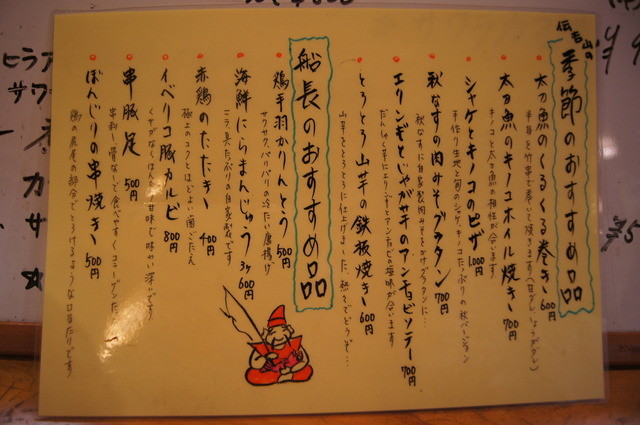 伝吉山の
季節のおすすめ品
太刀魚のくるくる巻き 600円
太刀魚のキノコホイル焼き 700円
キノコと太刀魚の相性が合います
シャケとキノコのピザ 1,000円
手作り生地と旬のシャケ、キノコたっぷりの秋バージョン
秋なすの肉みそグラタン 700円
秋なすに自家製肉みそをかけグラタンに…
エリンギとじゃがイモのアンチョビソテー 700円
とろとろ山芋の鉄板焼き 600円
山芋をとろとろに仕上げました、熱々でどうぞ…
船長のおすすめ品
鶏手羽かりんとう 500円
サクサク、パリパリの冷たい唐揚げ
海鮮にらまんじゅう 3ヶ 600円
ニラ、具たっぷりの自家製です
赤鶏のたたき 400円
極上のコクとほどよい歯ごたえ
イベリコ豚カルビ 800円
くせがなくほんのり甘味で味わい深いです
串豚足 500円
串刺し、骨なしで食べやすくコラーゲンたっ
ぼんじりの串焼き 500円
鶏の尻尾の部分でとろけるような口当たりです
ヒラ
サワ
カ
サ